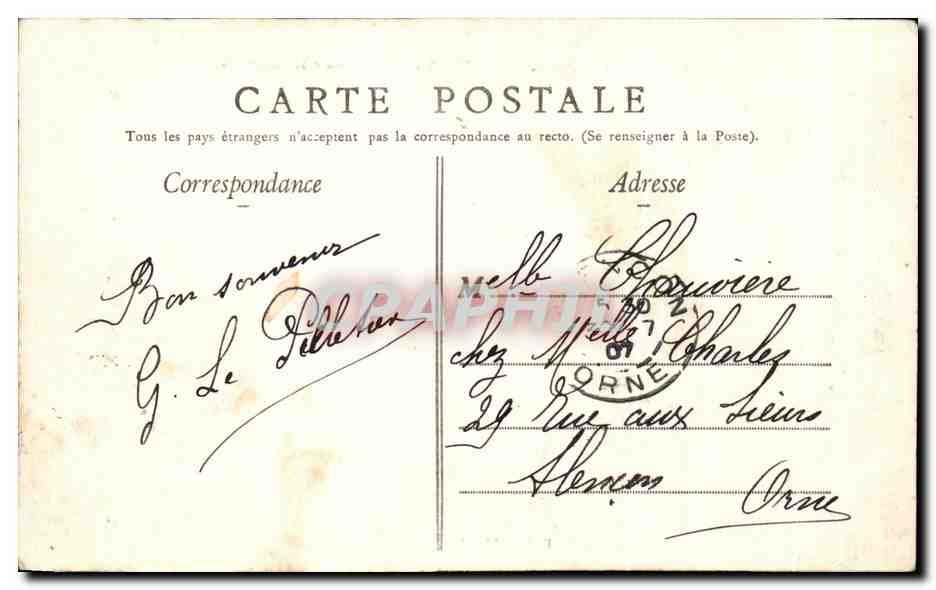 CARTE POSTALE
Tous les pays étrangers n'acceptent pas la correspondance au recto. (Se renseigner à la Poste).
Correspondance
Bon souvenir
G. Le Pelletier
Adresse
Melle Chauvière
chez Melle Charles
29 Rue aux Sieurs
Alençon
Orne
ORNE
07